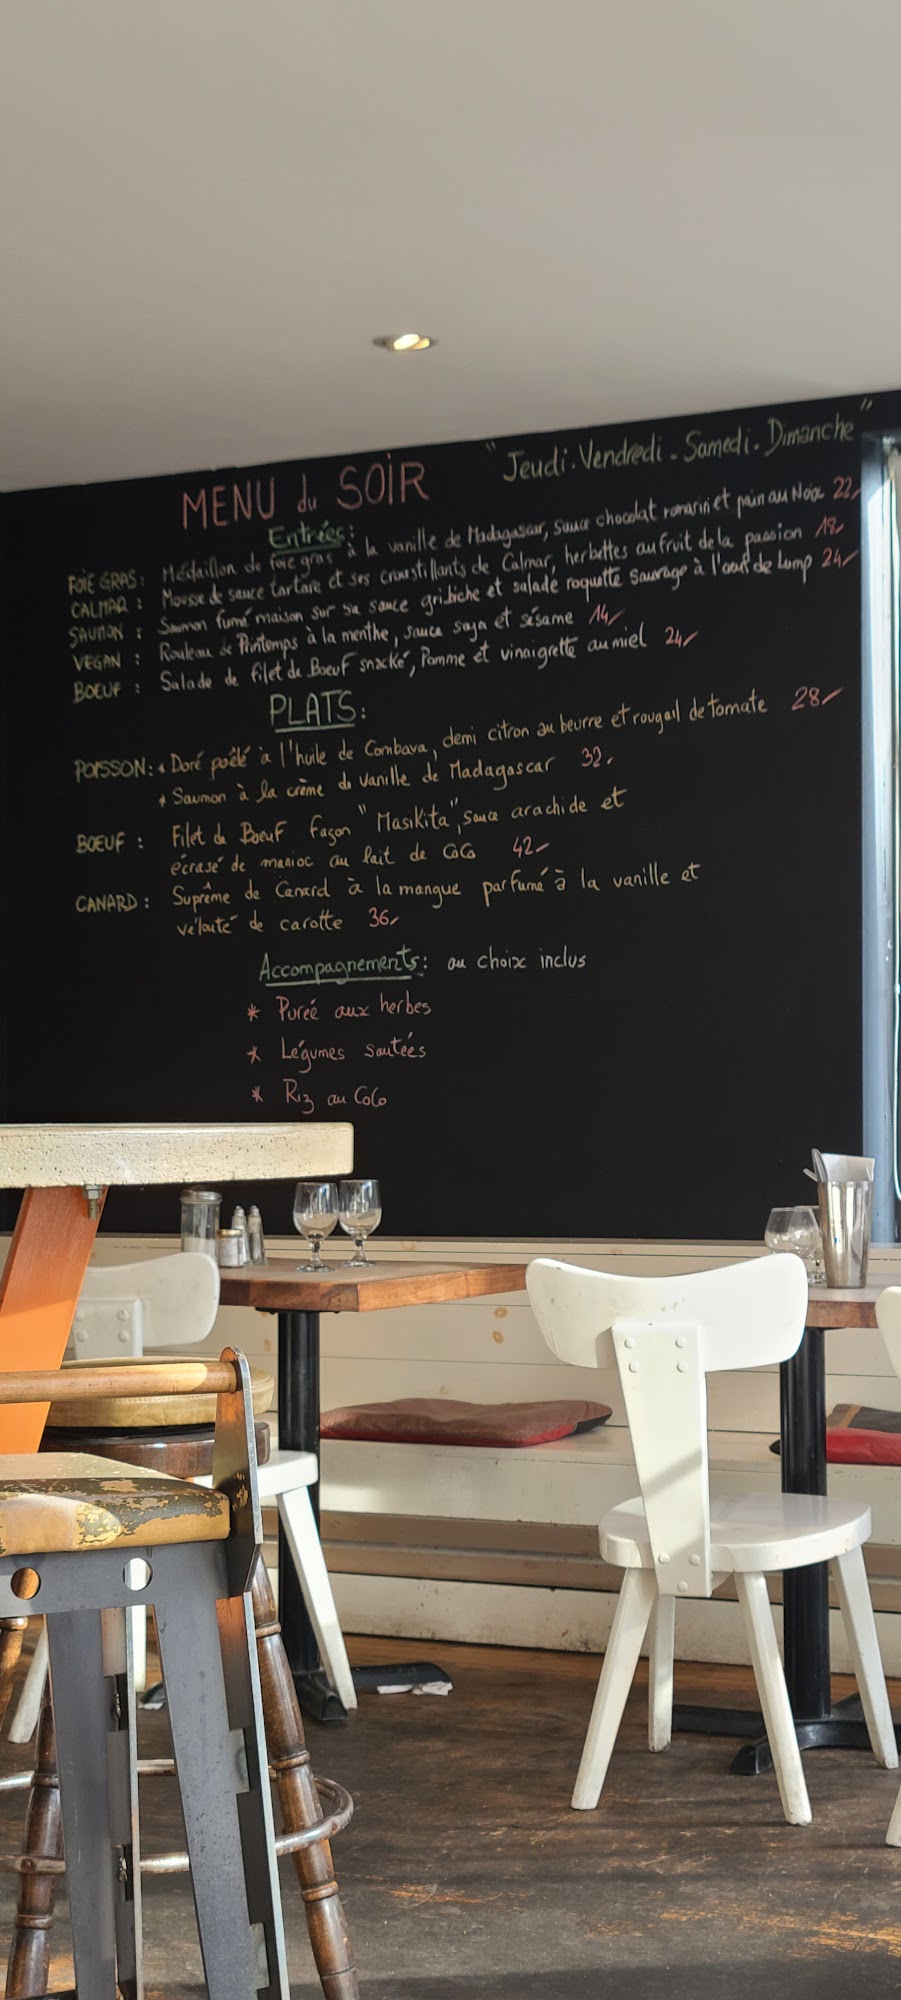 MENU du SOIR
"Jeudi.Vendredi.Samedi.Dimanche"
Entrées:
FOIE GRAS: Médaillon de foie gras à la vanille de Madagascar, sauce chocolat romarin et pain au Noix 22,
CALMAR : Mousse de sauce tartare et ses croustillants de Calmar, herbettes au fruit de la passion 18,
SAUMON : Saumon fumé maison sur sa sauce gribiche et salade roquette sauvage à l'oeuf de lump 24,
VEGAN : Rouleau de Printemps à la menthe, sauce soja et sésame 14,
BOEUF : Salade de filet de Boeuf snacké, Pomme et vinaigrette au miel 24,
PLATS:
POISSON: * Doré poêlé à l'huile de Combava, demi citron au beurre et rougail de tomate 28,
* Saumon à la crème de vanille de Madagascar 32,
BOEUF : Filet de Boeuf façon "Masikita", sauce arachide et
écrasé de manioc au lait de CoCo 42,
CANARD : Suprême de Canard à la mangue parfumé à la vanille et
velouté de carotte 36,
Accompagnements: au choix inclus
* Pureé aux herbes
* Légumes sautées
* Riz au CoCo